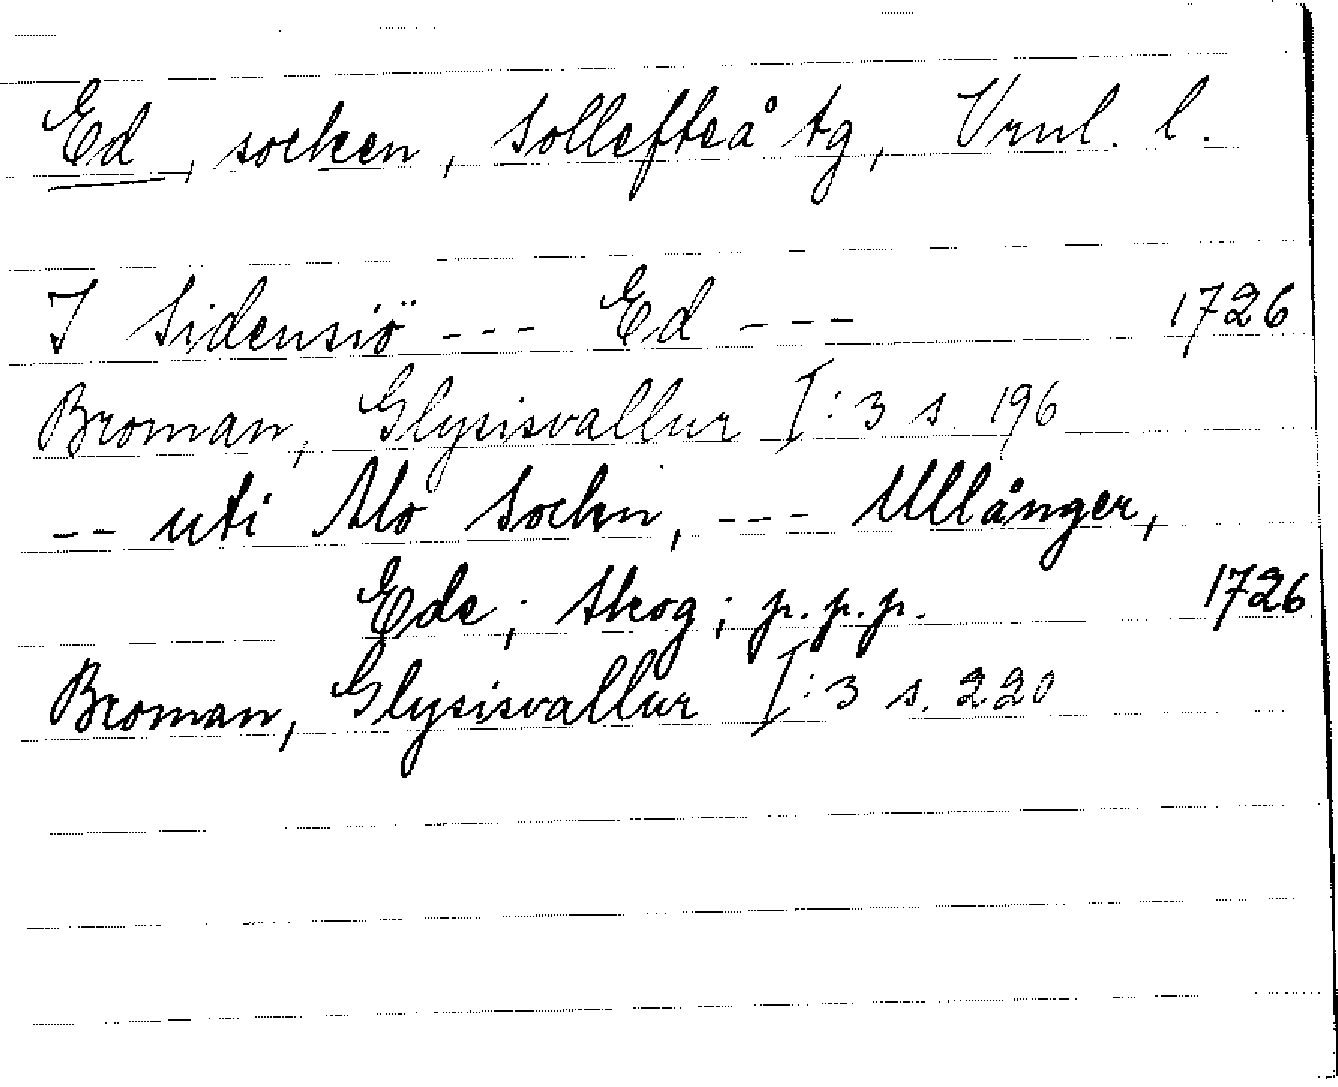 Ed, socken, Sollefteå tg, Vrnl. l.
I Sidensiö --- Ed --- 1726
Broman, Glysisvallur I:3 s. 196
-- uti Alo Sockn, --- Ullånger,
Ede; Skog; p.p.p. 1726
Broman, Glysisvallur I:3 s. 220